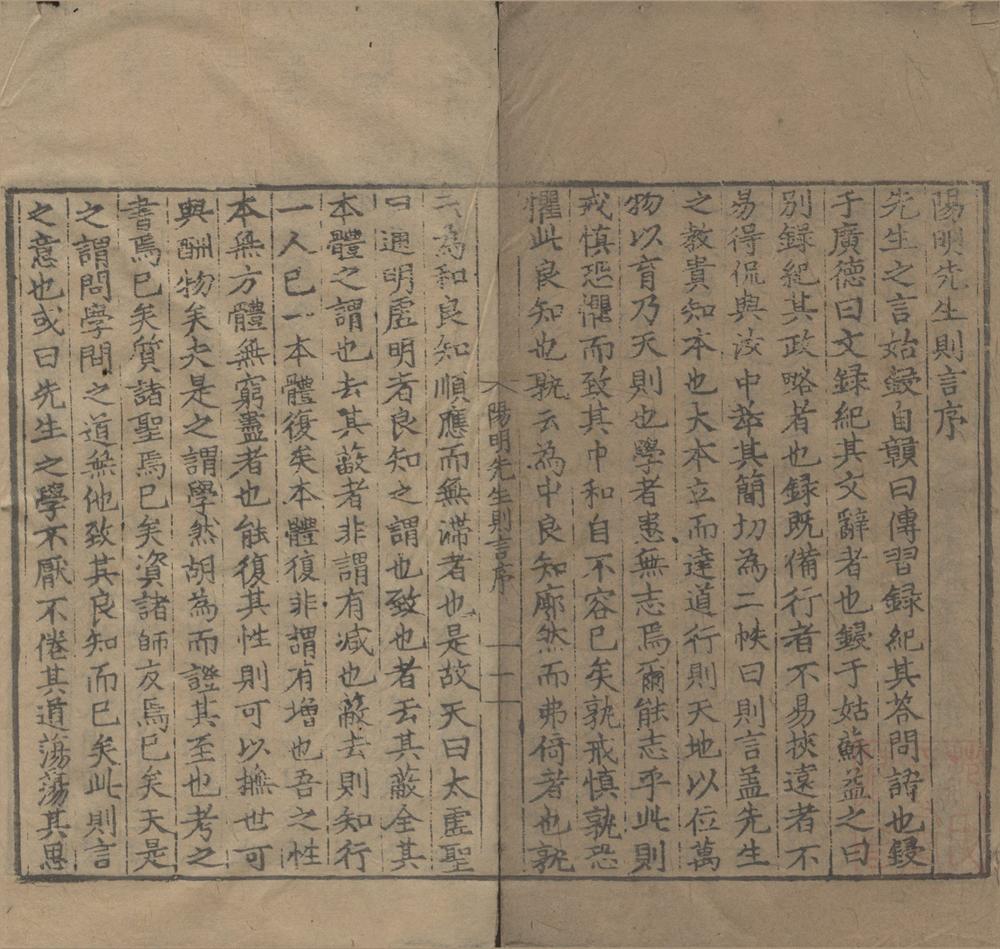 陽明先生則言序
先生之言始鋟自贛曰傳習録紀其答問語也鋟
于廣德曰文録紀其文辭者也鋟于姑蘇益之曰
別録紀其政略者也録既備行者不易挾遠者不
易得侃與汝中萃其簡切為二帙曰則言蓋先生
之教貴知本也大本立而達道行則天地以位萬
物以育乃天則也學者患無志焉爾能志乎此則
戒慎恐懼而致其中和自不容已矣孰戒慎孰恐
懼此良知也孰云為中良知廓然而弗倚者也孰
云為和良知順應而無滯者也是故天曰太虛聖
曰通明虛明者良知之謂也致也者去其蔽全其
本體之謂也去其蔽者非謂有減也蔽去則知行
一人已一本體復矣本體復非謂有增也吾之性
本無方體無窮盡者也能復其性則可以撫世可
與酬物矣夫是之謂學然胡為而證其至也考之
書焉已矣質諸聖焉已矣資諸師友焉已矣天是
之謂問學問之道無他致其良知而已矣此則言
之意也或曰先生之學不厭不倦其道蕩蕩其思
陽明先生則言序
一